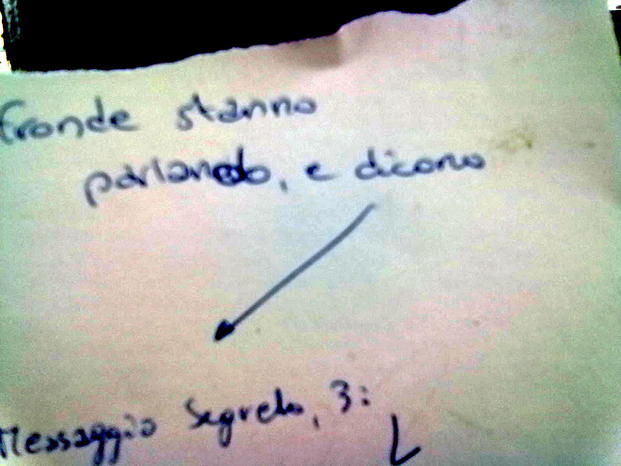 fronde stanno
parlando, e dicono
Messaggio segreto, 3: